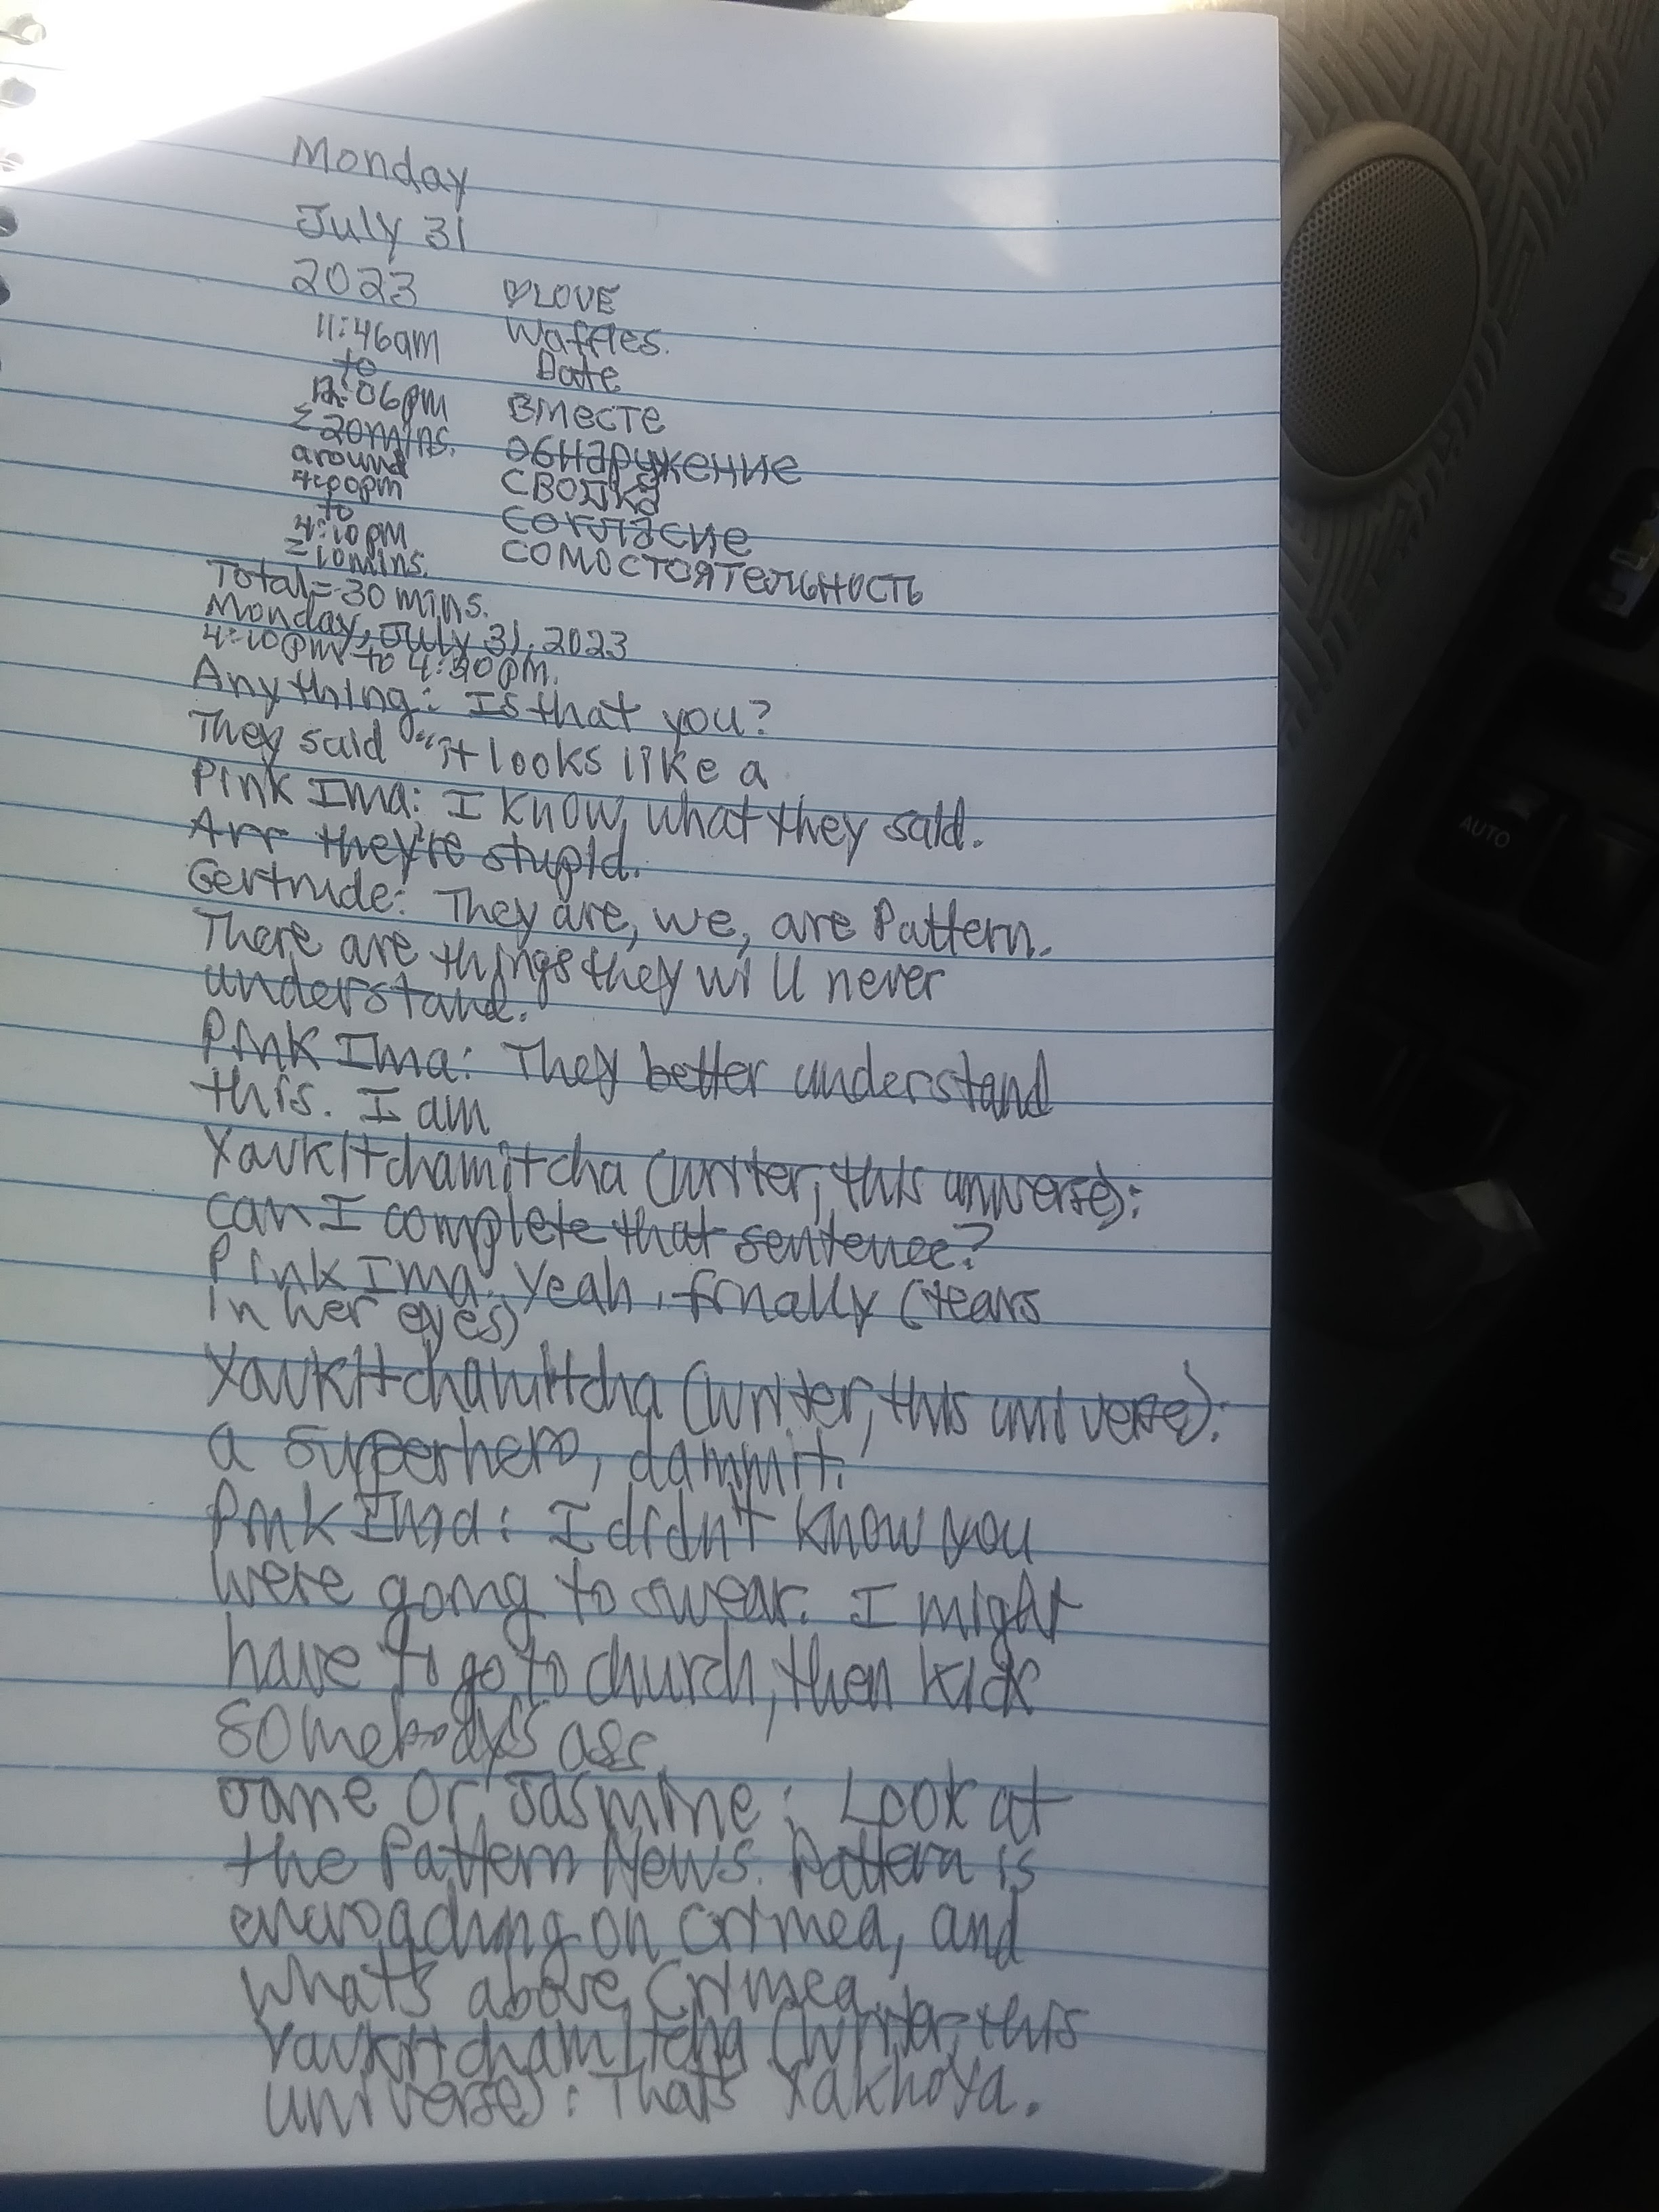 Monday
July 31
2023
♡LOVE
11:46am
Waffles.
to
Date
12:06pm
вместе
=20mins.
обнаружение
around
4:00pm
сводка
to
4:10pm
согласие
=10mins.
сомостоятельность
Total=30 mins.
Monday, July 31, 2023
4:10pm to 4:20pm.
Anything: Is that you?
They said "it looks like a
Pink Ima: I know what they said.
Arr they're stupid.
Gertrude: They are, we, are Pattern.
There are things they will never
understand.
Pink Ima: They better understand
this. I am
Yavkitchamitcha (writer, this universe):
can I complete that sentence?
Pink Ima: Yeah, finally (tears
in her eyes)
Yavkitchamitcha (writer, this universe):
a superhero, dammit.
Pink Ima: I didn't know you
were going to swear. I might
have to go to church, then kick
somebody's ass.
Jane or Jasmine: Look at
the Pattern News. Pattern is
encroaching on Crimea, and
what's above Crimea.
Yavkitchamitcha (writer, this
universe): That's Yakhoya.
AUTO